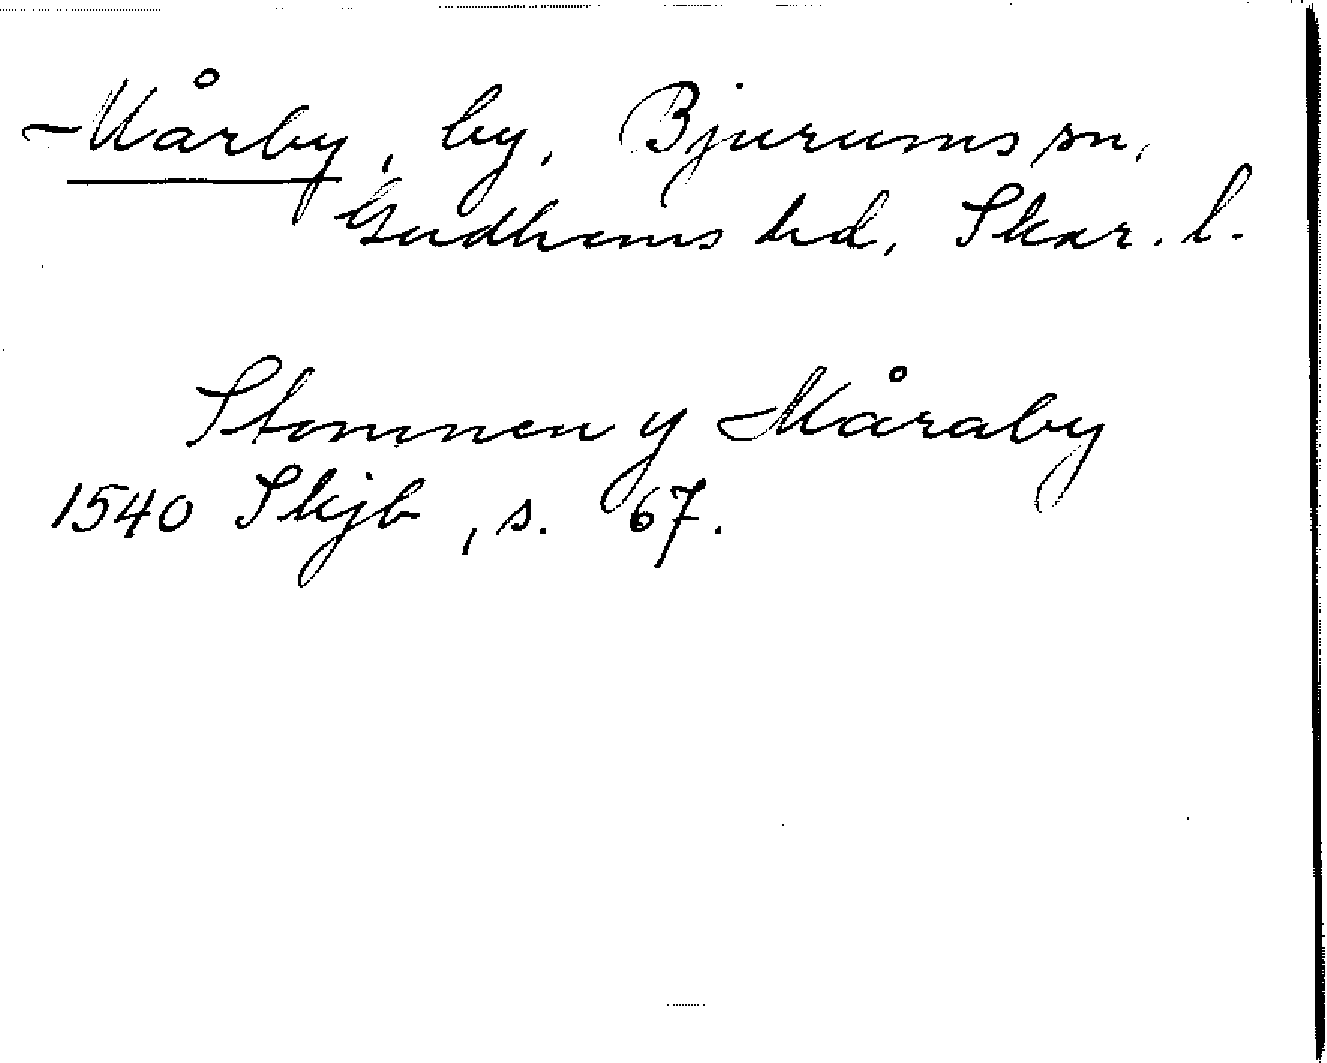 Mårby, by, Bjurums sn,
Gudhems hd, Skar. l.
Stommen y Måraby
1540 Skjb, s. 67.